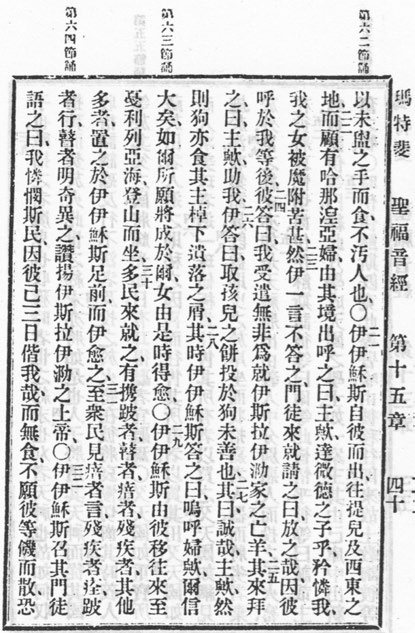 第六二節誦
第六三節誦
第六四節誦
瑪特斐 聖福音經 第十五章 四十
以未盥之手而食、不汚人也、〇二一伊伊穌斯自彼而出、往提兒及西東之
地、二二而顧有哈那湼亞婦、由其境出、呼之曰、主歟、達微德之子乎、矜憐我、
我之女被魔附苦甚、二三然伊一言不答之、門徒來就、請之曰、放之哉、因彼
呼於我等後、二四彼答曰、我受遣無非爲就伊斯拉伊泐家之亡羊、二五其來拜
之曰、主歟、助我、二六伊答曰、取孩兒之餅、投於狗、未善也、二七其曰、誠哉主歟、然
則狗亦食其主棹下遺落之屑、二八其時伊伊穌斯答之曰、嗚呼婦歟、爾信
大矣、如爾所願、將成於爾、女由是時得愈、〇二九伊伊穌斯由彼移往、來至
戞利列亞海、登山而坐、三十多民來就之、有攜跛者、瞽者、瘖者、殘疾者、其他
多者、置之於伊伊穌斯足前、而伊愈之、三一至衆民見瘖者言、殘疾者痊、跛
者行、瞽者明、奇異之、讚揚伊斯拉伊泐之上帝、〇三二伊伊穌斯召其門徒
語之曰、我憐憫斯民、因彼已三日偕我哉、而無食、不願彼等饑而散、恐